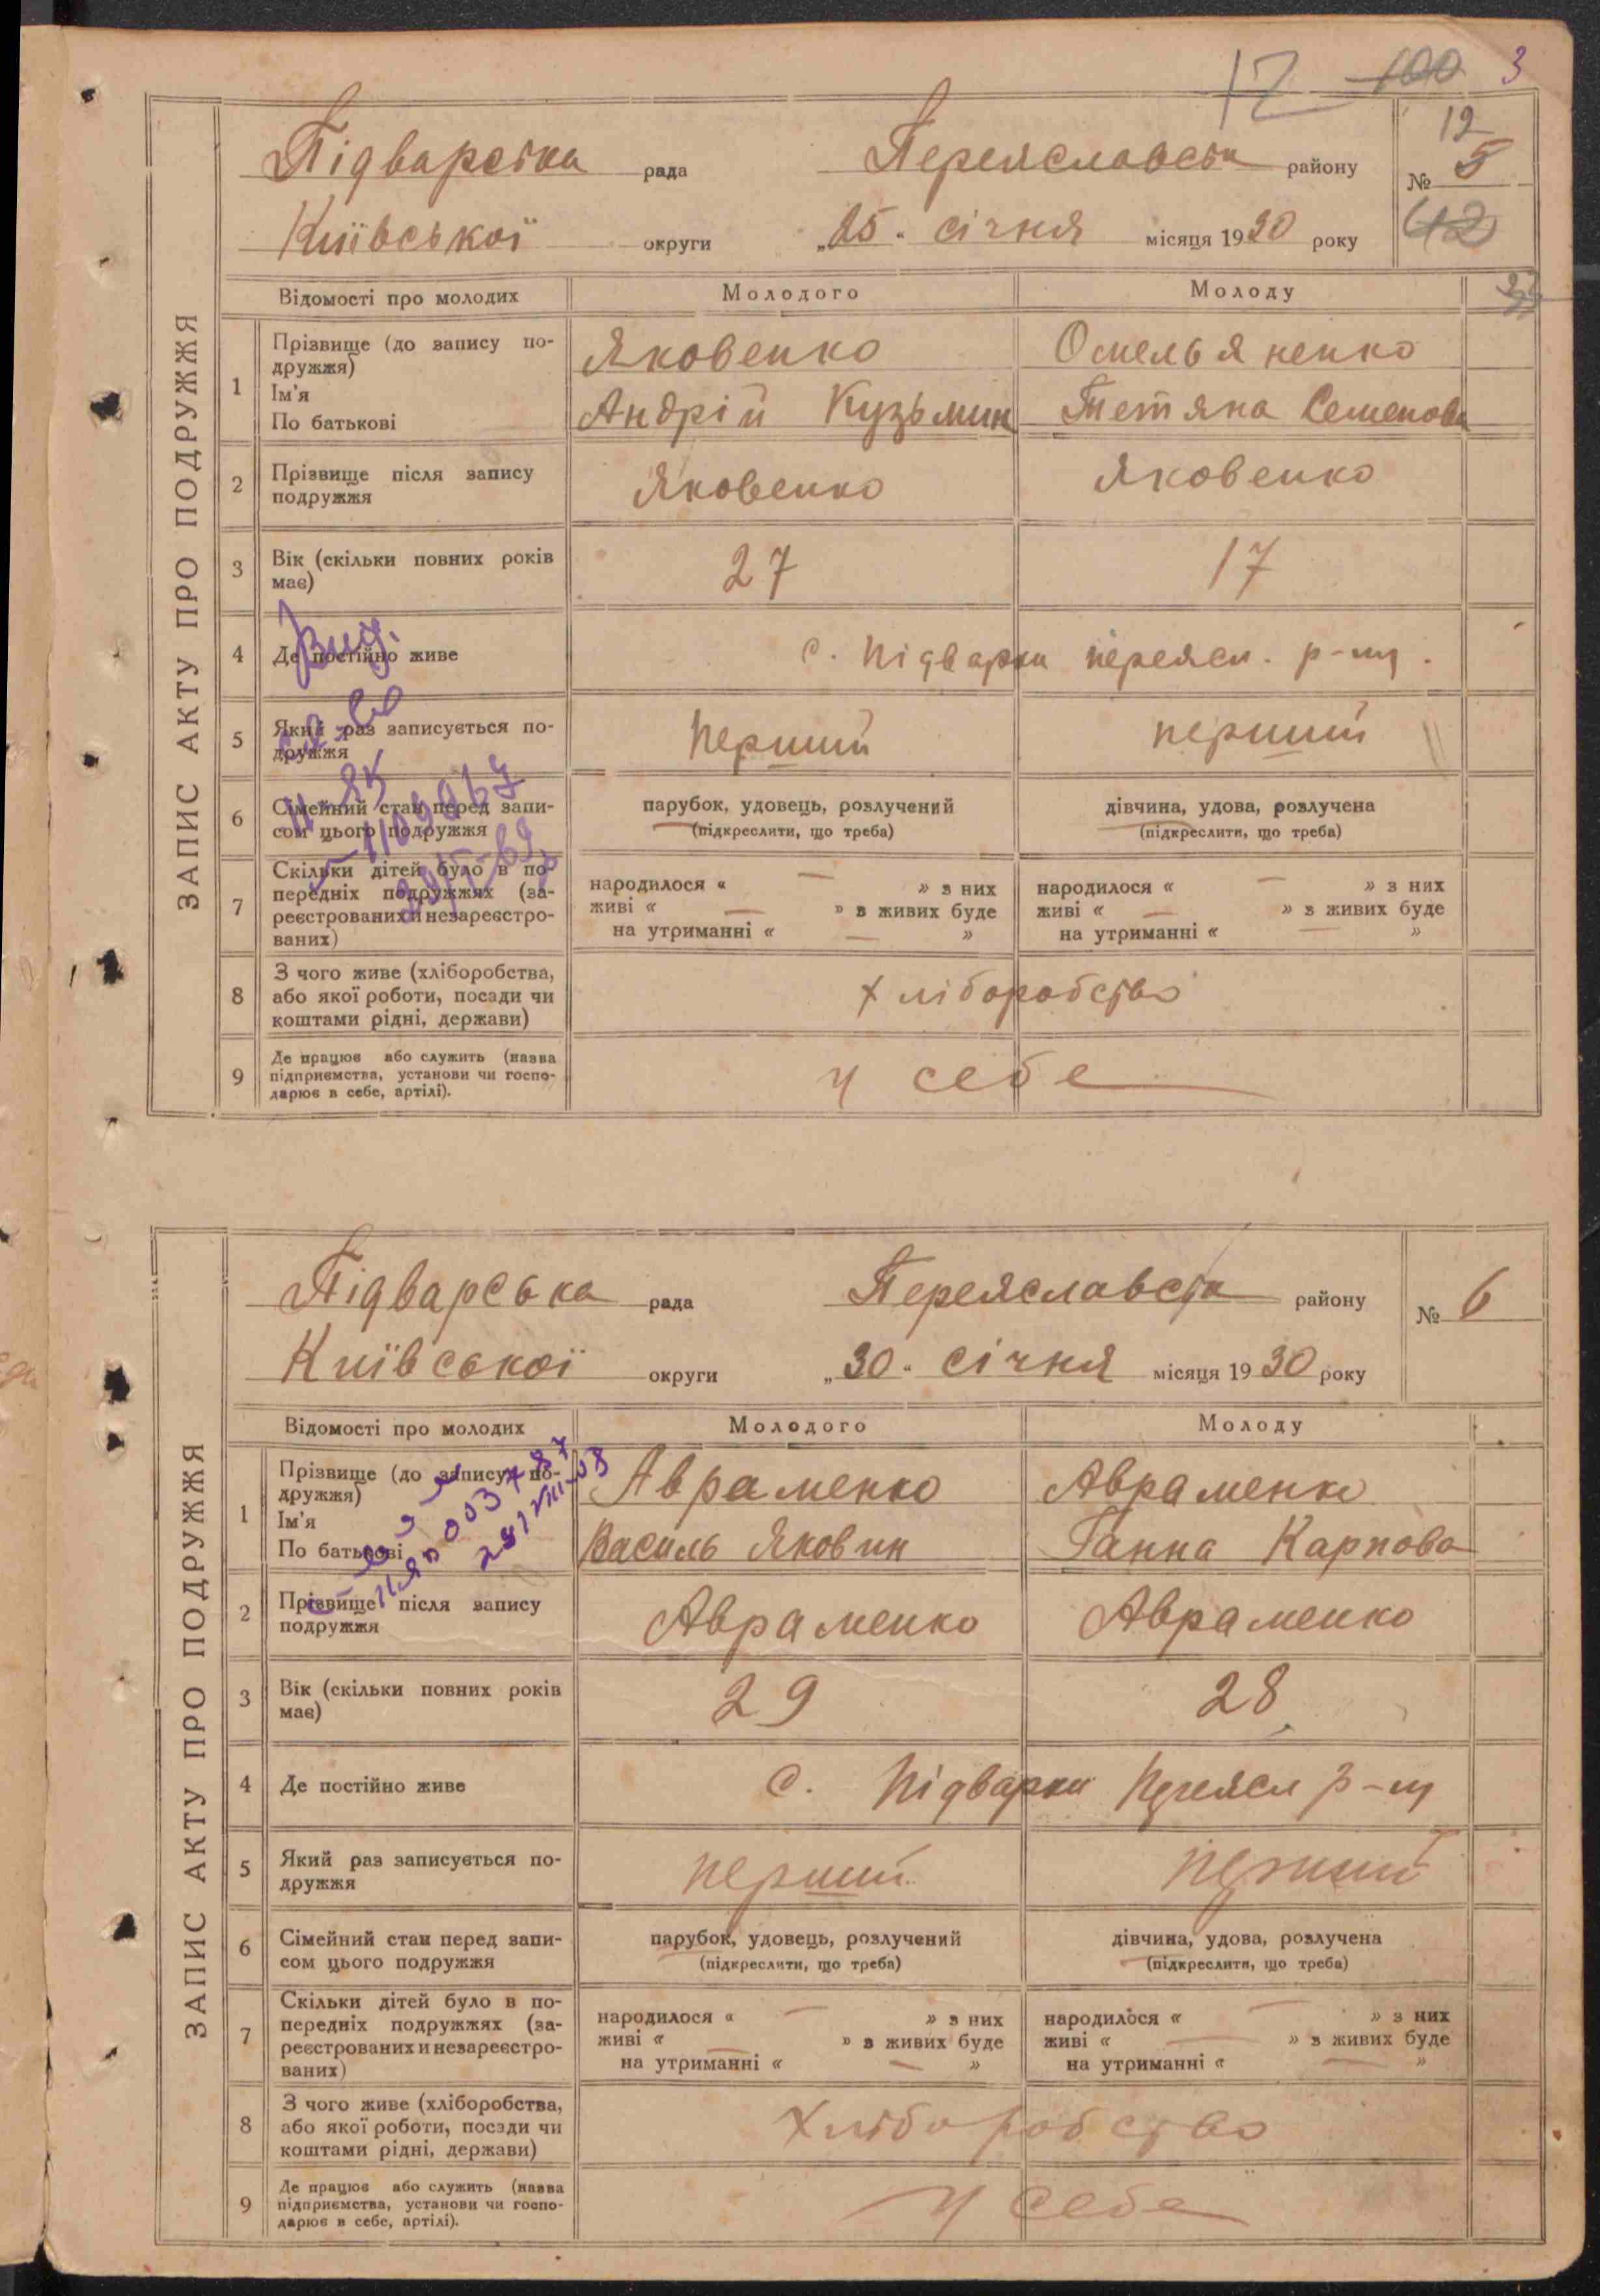 17 100 3
Підварська рада Переяславськ району № 5
12
Київської округи „25" січня місяця 1930 року (12)
ЗАПИС АКТУ ПРО ПОДРУЖЖЯ
Відомості про молодих Молодого Молоду
1 Прізвище (до запису по-
дружжя) Яковенко Омельяненко
Ім'я
По батькові Андрій Кузьмин Тетяна Семенова
2 Прізвище після запису
подружжя Яковенко Яковенко
3 Вік (скільки повних років
має) 27 17
4 Де постійно живе с. Підварки переясл. р-ну.
5 Який раз записується по-
дружжя перший перший
6 Сімейний стан перед запи-
сом цього подружжя
парубок, удовець, розлучений дівчина, удова, розлучена
(підкреслити, що треба) (підкреслити, що треба)
7 Скільки дітей було в по-
передніх подружжях (за-
реєстрованих и незареєстро-
ваних)
народилося « — » з них народилося « — » з них
живі « — » в живих буде живі « — » з живих буде
на утриманні « — » на утриманні « — »
8 З чого живе (хліборобства,
або якої роботи, посади чи
коштами рідні, держави) хліборобство
9 Де працює або служить (назва
підприємства, установи чи госпо-
дарює в себе, артілі). у себе
Вид.
Підварська рада Переяславськ району № 6
Київської округи „30" січня місяця 1930 року
ЗАПИС АКТУ ПРО ПОДРУЖЖЯ
Відомості про молодих Молодого Молоду
1 Прізвище (до запису по-
дружжя) Авраменко Авраменко
Ім'я
По батькові Василь Яковин Ганна Карпова
2 Прізвище після запису
подружжя Авраменко Авраменко
3 Вік (скільки повних років
має) 29 28
4 Де постійно живе с. Підварки Переясл р-ну
5 Який раз записується по-
дружжя перший перший
6 Сімейний стан перед запи-
сом цього подружжя
парубок, удовець, розлучений дівчина, удова, розлучена
(підкреслити, що треба) (підкреслити, що треба)
7 Скільки дітей було в по-
передніх подружжях (за-
реєстрованих и незареєстро-
ваних)
народилося « — » з них народилося « — » з них
живі « — » в живих буде живі « — » з живих буде
на утриманні « — » на утриманні « — »
8 З чого живе (хліборобства,
або якої роботи, посади чи
коштами рідні, держави) хліборобство
9 Де працює або служить (назва
підприємства, установи чи госпо-
дарює в себе, артілі). у себе